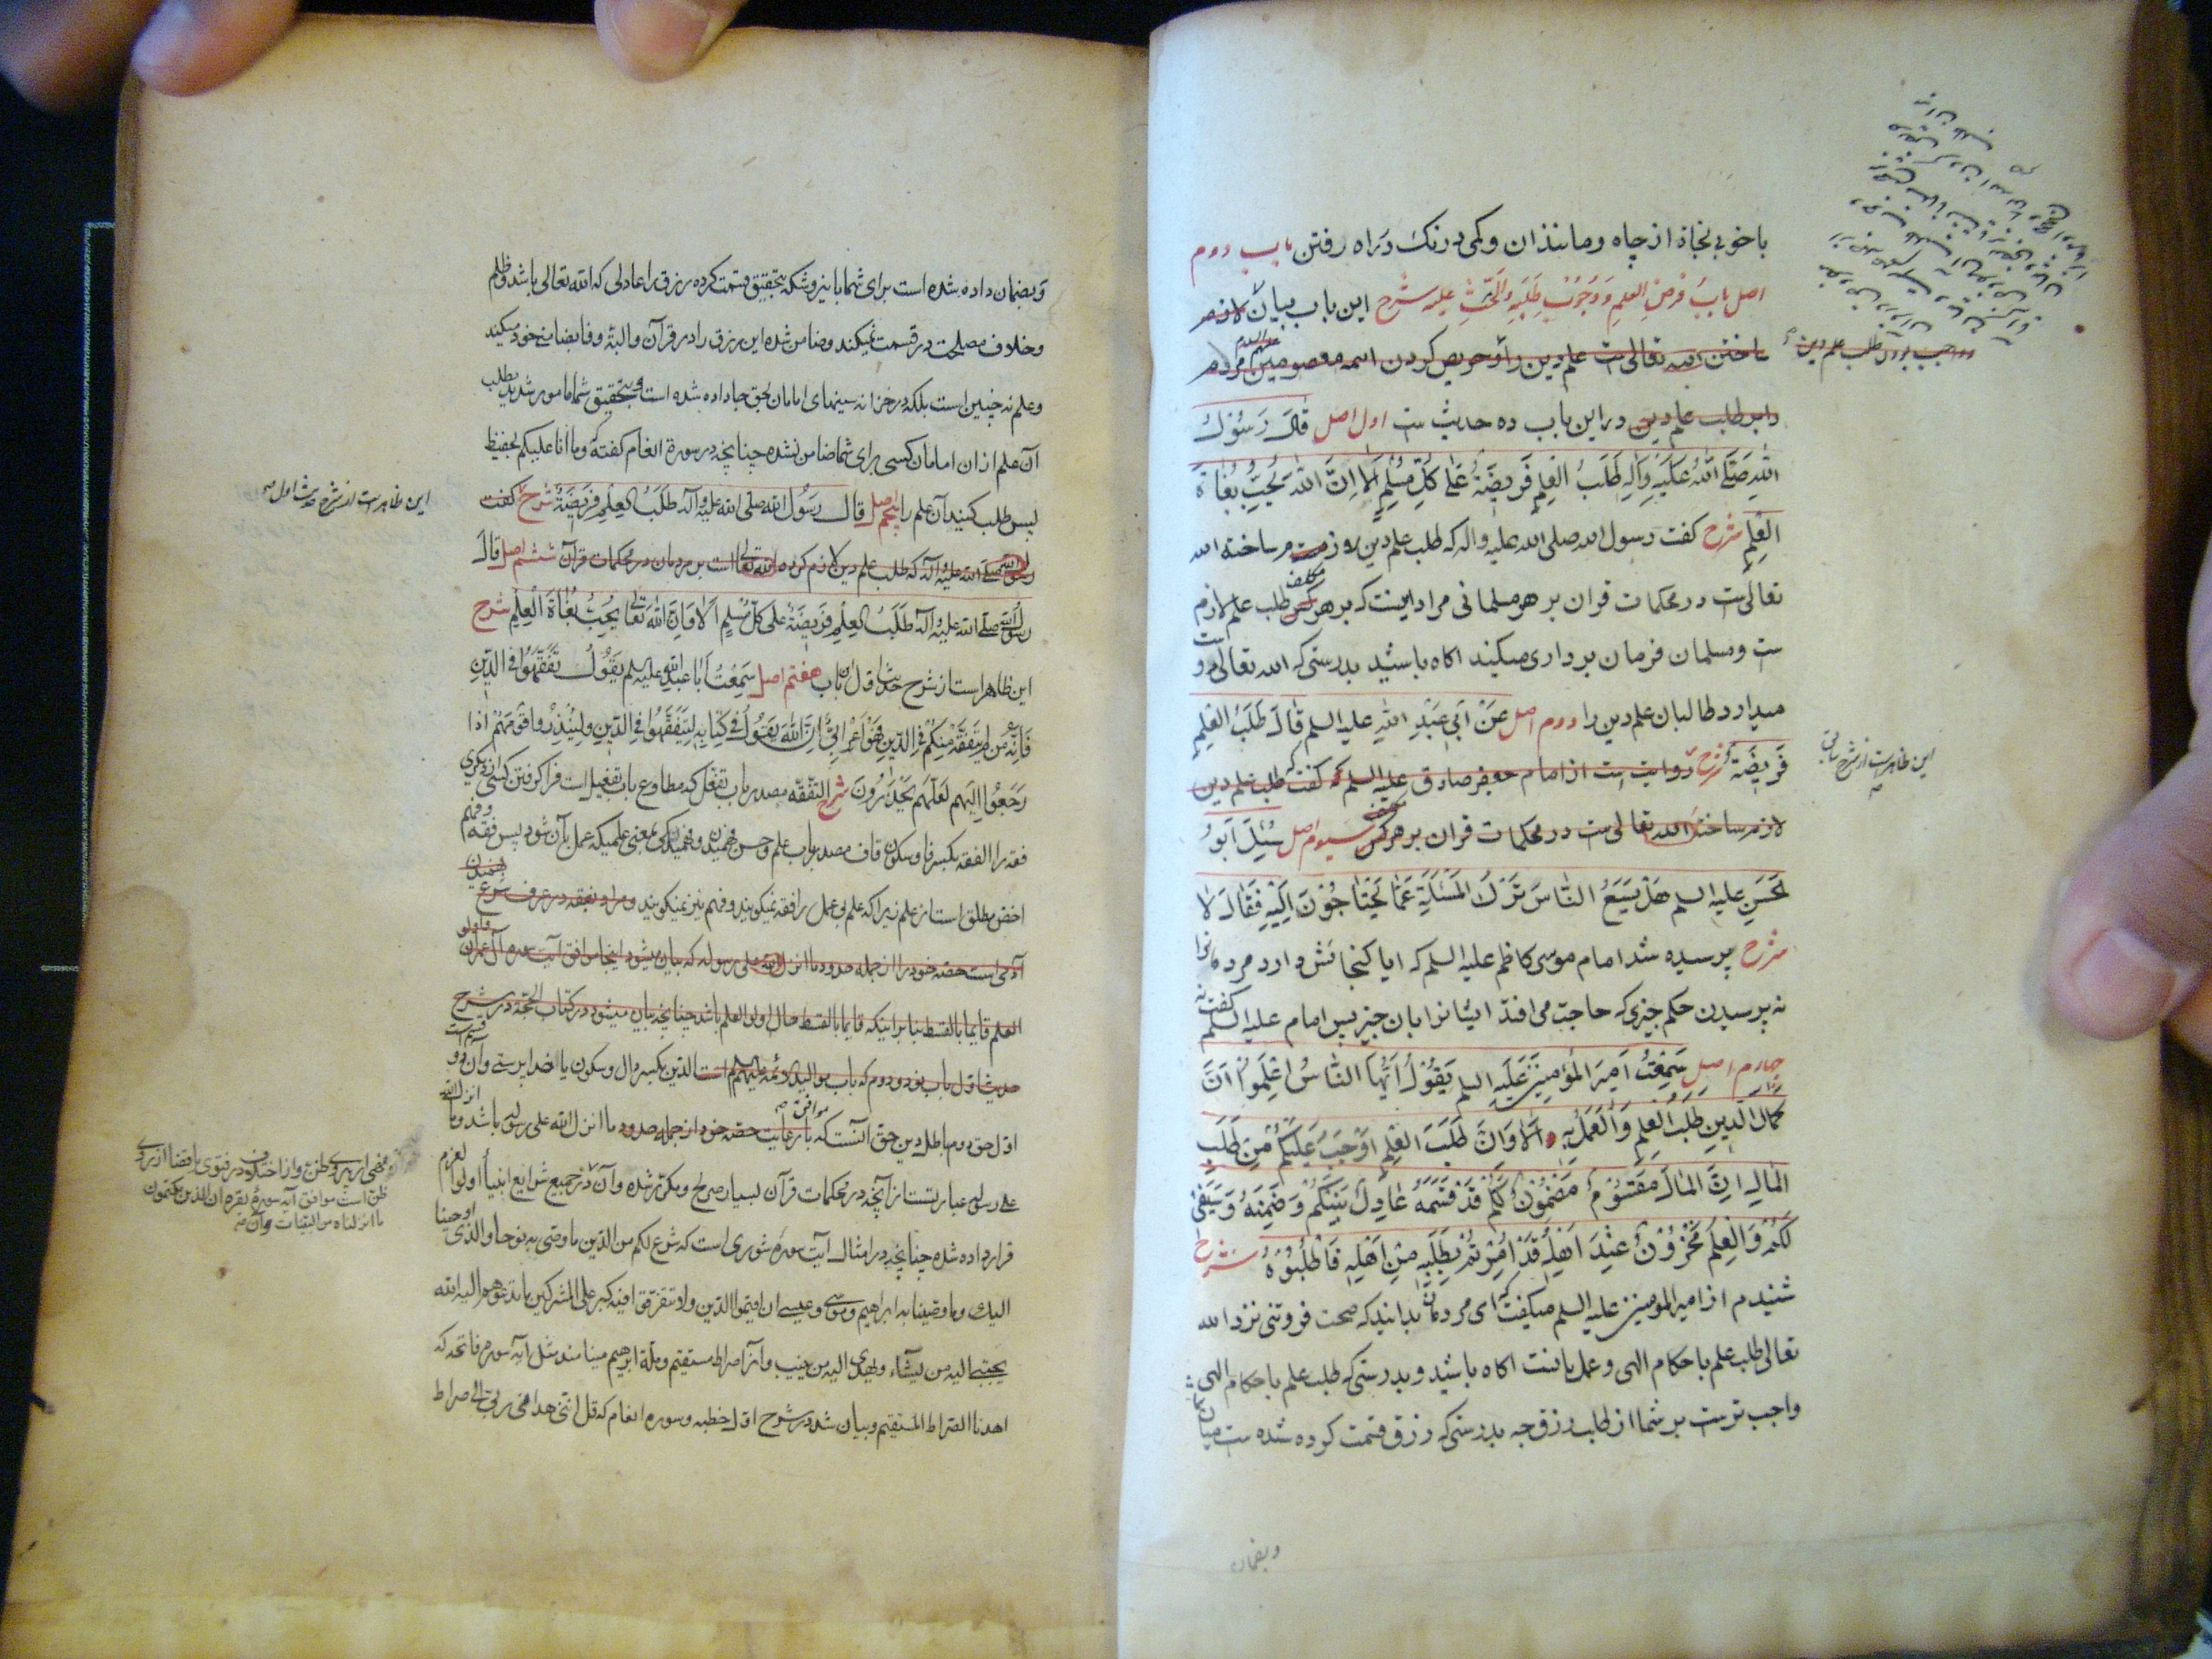 با خوبی نجاة از چاه و مانند ان و کمی درنک در راه رفتن باب دوم
اصل بابُ فَرْضِ العِلمِ وَوُجُوْبِ طَلَبِهِ وَالْحَثِّ علیه شرح این باب بیان لازم
ساختن الله تعالی ست علم دین را و حریص کردن ائمه معصومین علیهم السلام مردم
را بر طلب علم دین در این باب ده حدیث ست اول اصل قالَ رَسُوْلُ
اللهِ صَلَّی اللهُ عَلَیْهِ وَآلِهِ طَلَبُ الْعِلمِ فَرِیضَةٌ عَلی کُلِّ مُسْلِمٍ اَلا اِنَّ اللهَ یُحِبُّ بُغٰاةَ
الْعِلمِ شرح کفت رسول الله صلی الله علیه واله که طلب علم دین لازم ساخته الله
تعالی ست در محکمات قران بر هر مسلمانی مراد اینست که بر هر کس مکلف طلب علم لازم
ست و مسلمان فرمان برداری میکند اکاه باشید بدرستی که الله تعالی دوست
میدارد طالبان علم دین را دوم اصل عَنْ اَبی عَبْدِ اللهِ علیه السلم قالَ طَلَبُ العِلْمِ
فَرِیضَةٌ شرح روایت ست از امام جعفر صادق علیه السلم که کفت طلب علم دین
لازم ساخته الله تعالی ست در محکمات قران بر هر کس مکلف سیوم اصل سُئِلَ اَبُو
لحَسَنِ علیه السلم هَلْ یَسَعُ النّاسَ تَرْکُ المَسْئَلَةِ عَمّا یَحْتاجُوْنَ اِلَیْهِ فَقالَ لا
شرح پرسیده شد امام موسی کاظم علیه السلم که ایا کنجائش دارد مردمانرا
نه پرسیدن حکم چیزی که حاجت می افتد ایشانرا بان چیز پس امام علیه السلم کفت نه
چهارم اصل سَمِعْتُ اَمِیرَ المُؤمِنِینَ عَلَیْهِ السلم یَقُوْلُ اَیُّهَا النّاسُ اعْلَمُوا اَنَّ
کَمالَ الدِّینِ طَلَبُ العِلمِ وَالْعَمَلُ بِهِ اَلا وَاِنَّ طَلَبَ الْعِلْمِ اَوْجَبُ عَلَیْکُمْ مِنْ طَلَبِ
الْمالِ اِنَّ المالَ مَقْسُوْمٌ مَضْمُوْنٌ لَکُمْ قَدْ قَسَمَهُ عادِلٌ بَیْنَکُمْ وَضَمِنَهُ وَسَیَفی
لَکُمْ وَالْعِلمُ مَخْزُوْنٌ عِنْدَ اَهْلِهِ قَدْ اُمِرْتُمْ بِطَلَبِهِ مِنْ اَهْلِهِ فَاطْلُبُوْهُ شرح
شنیدم از امیر المومنین علیه السلم میکفت که ای مردمان بدانید که صحت فروتنی نزد الله
تعالی طلب علم باحکام الهی و عمل بانست اکاه باشید و بدرستی که طلب علم باحکام الهی
واجب ترست بر شما از طلب رزق چه بدرستی که رزق قسمت کرده شده ست میان شما
این ظاهرست از شرح سابق
وبضمان
وبضمان داده شده است برای شما بابنروشکه بتحقیق قسمت کرده رزق را عادلی که الله تعالی باشد و ظلم
و خلاف مصلحت در قسمت نمیکند و ضامن شده این رزق را در قرآن و البتة وفا بضامنی خود میکند
و علم نه چنین است بلکه در خزانه سینهای امامان بحق جا داده شده است و بتحقیق شما مامور شدید بطلب
آن علم از ان امامان کسی برای شما ضامن نشده چنانچه در سورة انعام کفته که وما انا علیکم بحفیظ
پس طلب کنید آن علم را پنجم اصل قال رسُول الله صلی الله علیه وآله طَلَبُ العِلمِ فَرِیضَةٌ شرح کفت
رسول الله صلی الله علیه وآله که طلب علم دین لازم کرده الله تعالی است بر مردمان در محکمات قرآن ششم اصل قالَ
رسول الله صلی الله علیه وآله طَلَبُ العِلْمِ فَرِیضَةٌ عَلی کُلِّ مُسْلِمٍ اَلا وَاِنَّ اللهَ تعالی یُحِبُّ بُغاةَ الْعِلْمِ شرح
این ظاهر است از شرح حدیث اول این باب هفتم اصل سَمِعْتُ اَبا عَبدِ اللهِ علیه السلم یَقُولُ تَفَقَّهُوا فی الدّینِ
فَاِنَّهُ مَن لَمْ یَتَفَقَّهْ مِنکُمْ فِی الدّینِ فَهُوَ اَعْرابِیٌّ اِنَّ اللهَ یَقُولُ فی کِتابِهِ لِیَتَفَقَّهُوا فِی الدّینِ وَلِیُنْذِرُوا قَوْمَهُمْ اِذا
رَجَعُوا اِلَیْهِمْ لَعَلَّهُم یَحْذَرُونَ شرح التفقّه مصدر باب تفعّل که مطاوع باب تفعیل است فرا کرفتن کسی از دیکری
فقه را الفقه بکسر فا و سکون قاف مصدر باب علم و حسن فهمیدن و فهمیدکی بمعنی علمیکه عمل بآن شود پس فقه و فهم
اخص مطلق است از علم زیرا که علم بی عمل را فقه نمیکویند و فهم نیز نمیکویند و مراد بفقه در عرف شرع فهمیدن
آدمی است حصه خود را از جمله حدود ما انزل الله علی رسوله که بیان میشود اینجا موافق آیت سوره آل عمران و اولو
العلم قایما بالقسط بنا بر اینکه قایما بالقسط حال اولو العلم باشد چنانچه بیان میشود در کتاب الحجة در شرح
حدیث اول باب نود و دوم که باب موالید الائمه علیهم السلم است الدّین بکسر دال و سکون یا خدا پرستی و آن دو قسم است
اوّل حق دوم باطل دین حق آنست که موافق با رعایت حصه خود از جمله حدود ما انزل الله علی رسوله باشد و ما انزل الله
علی رسوله عبارتست از آنچه در محکمات قرآن بسیار صریح و مکرر شده و آن در جمیع شرایع انبیاء اولوا العزم
قرار داده شده چنانچه در امثال آیت سوره شوری است که شرع لکم من الدّین ما وصی به نوحا والذی اوحینا
الیک وما وصینا به ابراهیم وموسی وعیسی ان اقیموا الدّین ولا تتفرّقوا فیه کبر علی المشرکین ما تدعوهم الیه الله
یجتبی الیه من یشاء ویهدی الیه من ینیب و آنرا صراط مستقیم و ملّة ابرهیم مینامند مثل آیه سوره فاتحه که
اهدنا الصّراط المستقیم و بیان شد در شرح اوّل خطبه و سوره انعام که قل انّنی هدانی ربّی الی صراط
این ظاهر است از شرح حدیث اول